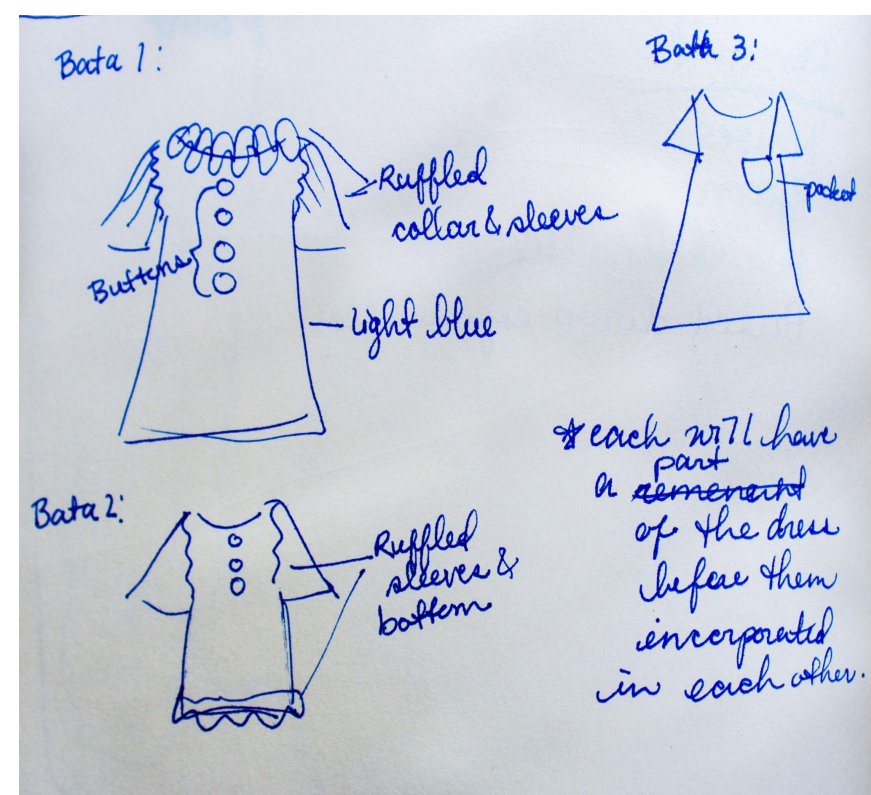 Bata 1:
Ruffled
collar & sleeves
Buttons
light blue
Bata 2:
Ruffled
sleeves &
bottom
Bata 3:
pocket
* each will have
part
a
of the dress
before them
incorporated
in each other.